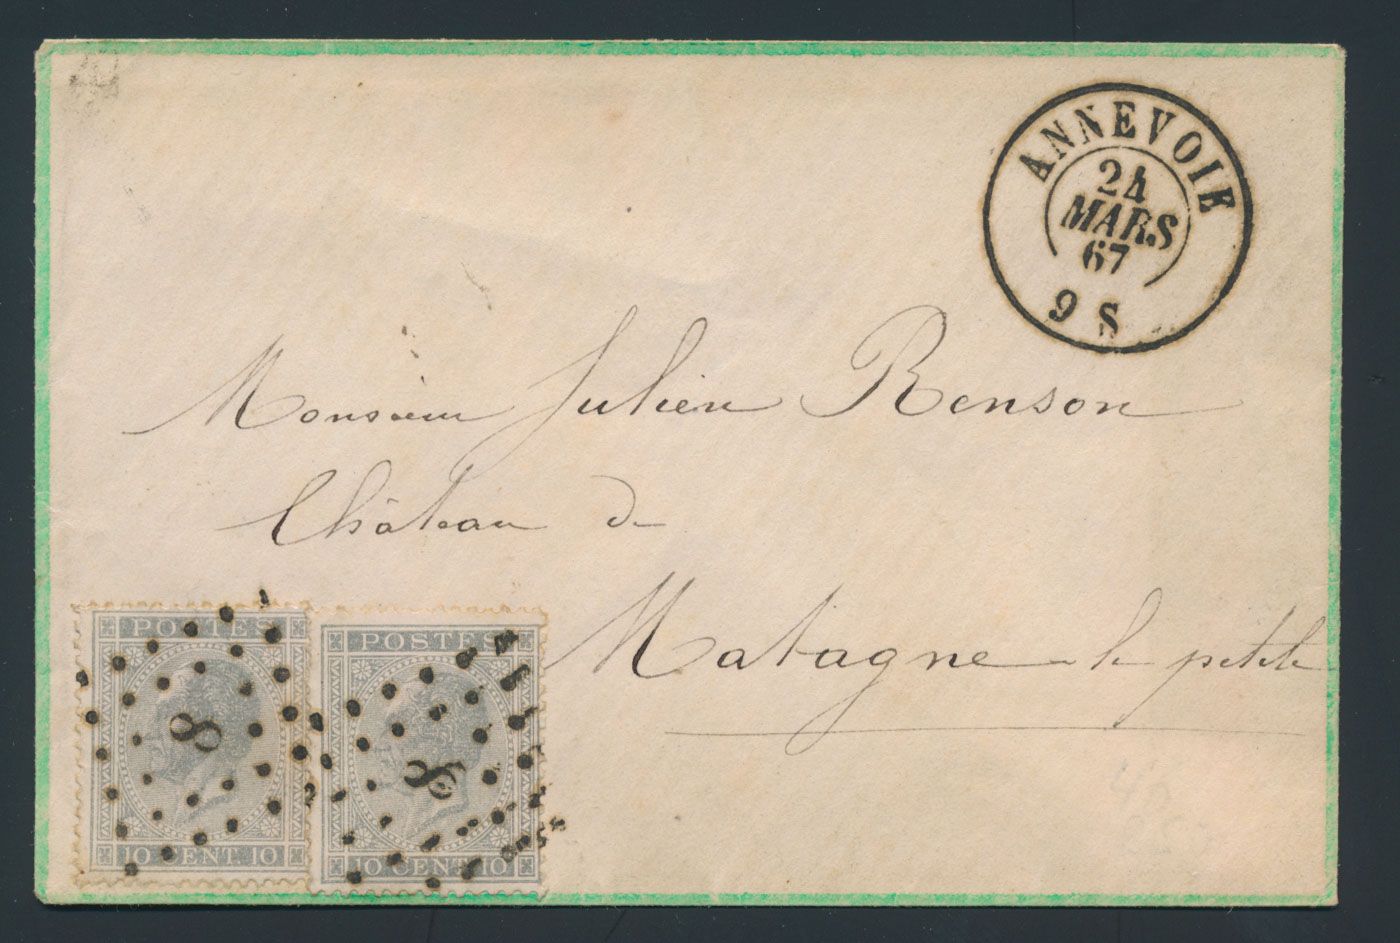 ANNEVOIE
24
MARS
67
9 S
Monsieur Julien Renson
Château de
Matagne la petite
POSTES
8
10 CENT 10
POSTES
8
10 CENT 10